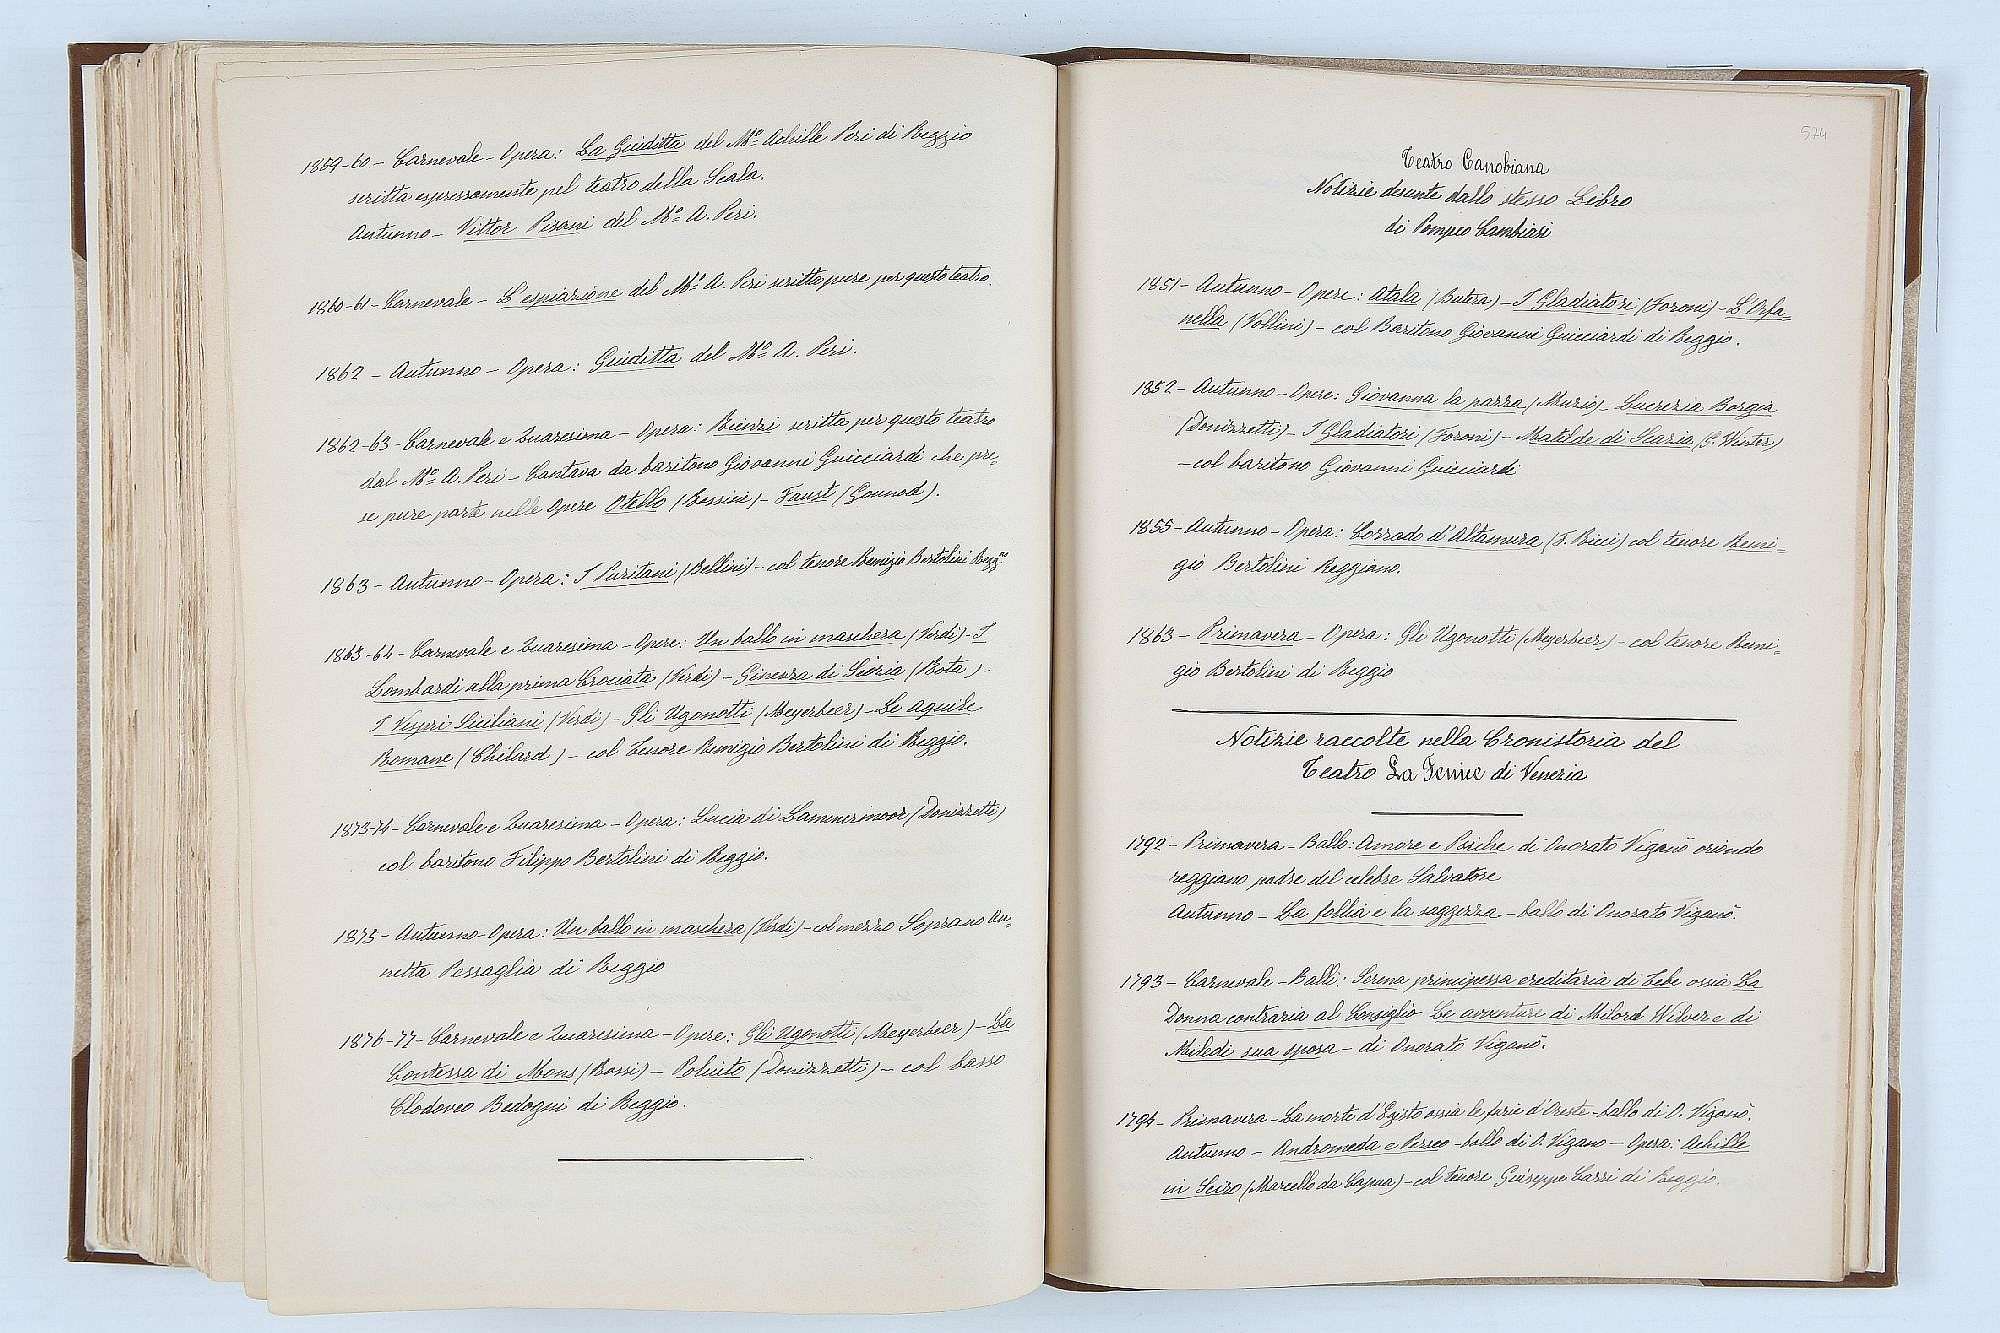 1859-60 - Carnevale - Opera: La Giuditta del Mº Achille Peri di Reggio
scritta espressamente pel teatro della Scala.
Autunno - Vittor Pisani del Mº A. Peri.
1860-61 - Carnevale - L'espiazione del Mº A. Peri scritta pure per questo teatro.
1862 - Autunno - Opera: Giuditta del Mº A. Peri.
1862-63 - Carnevale e Quaresima - Opera: Rienzi scritta per questo teatro
dal Mº A. Peri - Cantava da baritono Giovanni Guicciardi che pre-
se pure parte nelle Opere Otello (Rossini) - Faust (Gounod).
1863 - Autunno - Opera: I Puritani (Bellini) - col tenore Remigio Bertolini Regg.no
1863-64 - Carnevale e Quaresima - Opere: Un ballo in maschera (Verdi) - I
Lombardi alla prima Crociata (Verdi) - Ginevra di Scozia (Rota)
I Vespri Siciliani (Verdi) - Gli Ugonotti (Meyerbeer) - Le aquile
Romane (Chelard) - col Tenore Remigio Bertolini di Reggio.
1873-74 - Carnevale e Quaresima - Opera: Lucia di Lammermoor (Donizzetti)
col baritono Filippo Bertolini di Reggio.
1875 - Autunno - Opera: Un ballo in maschera (Verdi) - col mezzo Soprano An-
netta Pessaglia di Reggio
1876-77 - Carnevale e Quaresima - Opere: Gli Ugonotti (Meyerbeer) - La
Contessa di Mons (Rossi) - Poliuto (Donizzetti) - col basso
Clodoveo Bedogni di Reggio.
574
Teatro Canobiana
Notizie desunte dallo stesso Libro
di Pompeo Cambiasi
1851 - Autunno - Opere: Atala (Butera) - I Gladiatori (Foroni) - L'Orfa-
nella (Vollini) - col Baritono Giovanni Guicciardi di Reggio.
1852 - Autunno - Opere: Giovanna la pazza (Muzio) - Lucrezia Borgia
(Donizzetti) - I Gladiatori (Foroni) - Matilde di Scozia (G. Winter)
- col baritono Giovanni Guicciardi
1855 - Autunno - Opera: Corrado d'Altamura (F. Ricci) col tenore Remi-
gio Bertolini Reggiano.
1863 - Primavera - Opera: Gli Ugonotti (Meyerbeer) - col tenore Remi-
gio Bertolini di Reggio
Notizie raccolte nella Cronistoria del
Teatro La Fenice di Venezia
1792 - Primavera - Ballo: Amore e Psiche di Onorato Viganò oriundo
reggiano padre del celebre Salvatore
Autunno - La follia e la saggezza - ballo di Onorato Viganò.
1793 - Carnevale - Balli: Serena principessa ereditaria di Tebe ossia La
Donna contraria al Consiglio Le avventure di Milord Wilver e di
Miledi sua sposa - di Onorato Viganò.
1794 - Primavera - La morte d'Egisto ossia le furie d'Oreste - ballo di O. Viganò.
Autunno - Andromeda e Perseo - ballo di O. Vigano - Opera: Achille
in Sciro (Marcello da Capua) - col tenore Giuseppe Carri di Reggio.